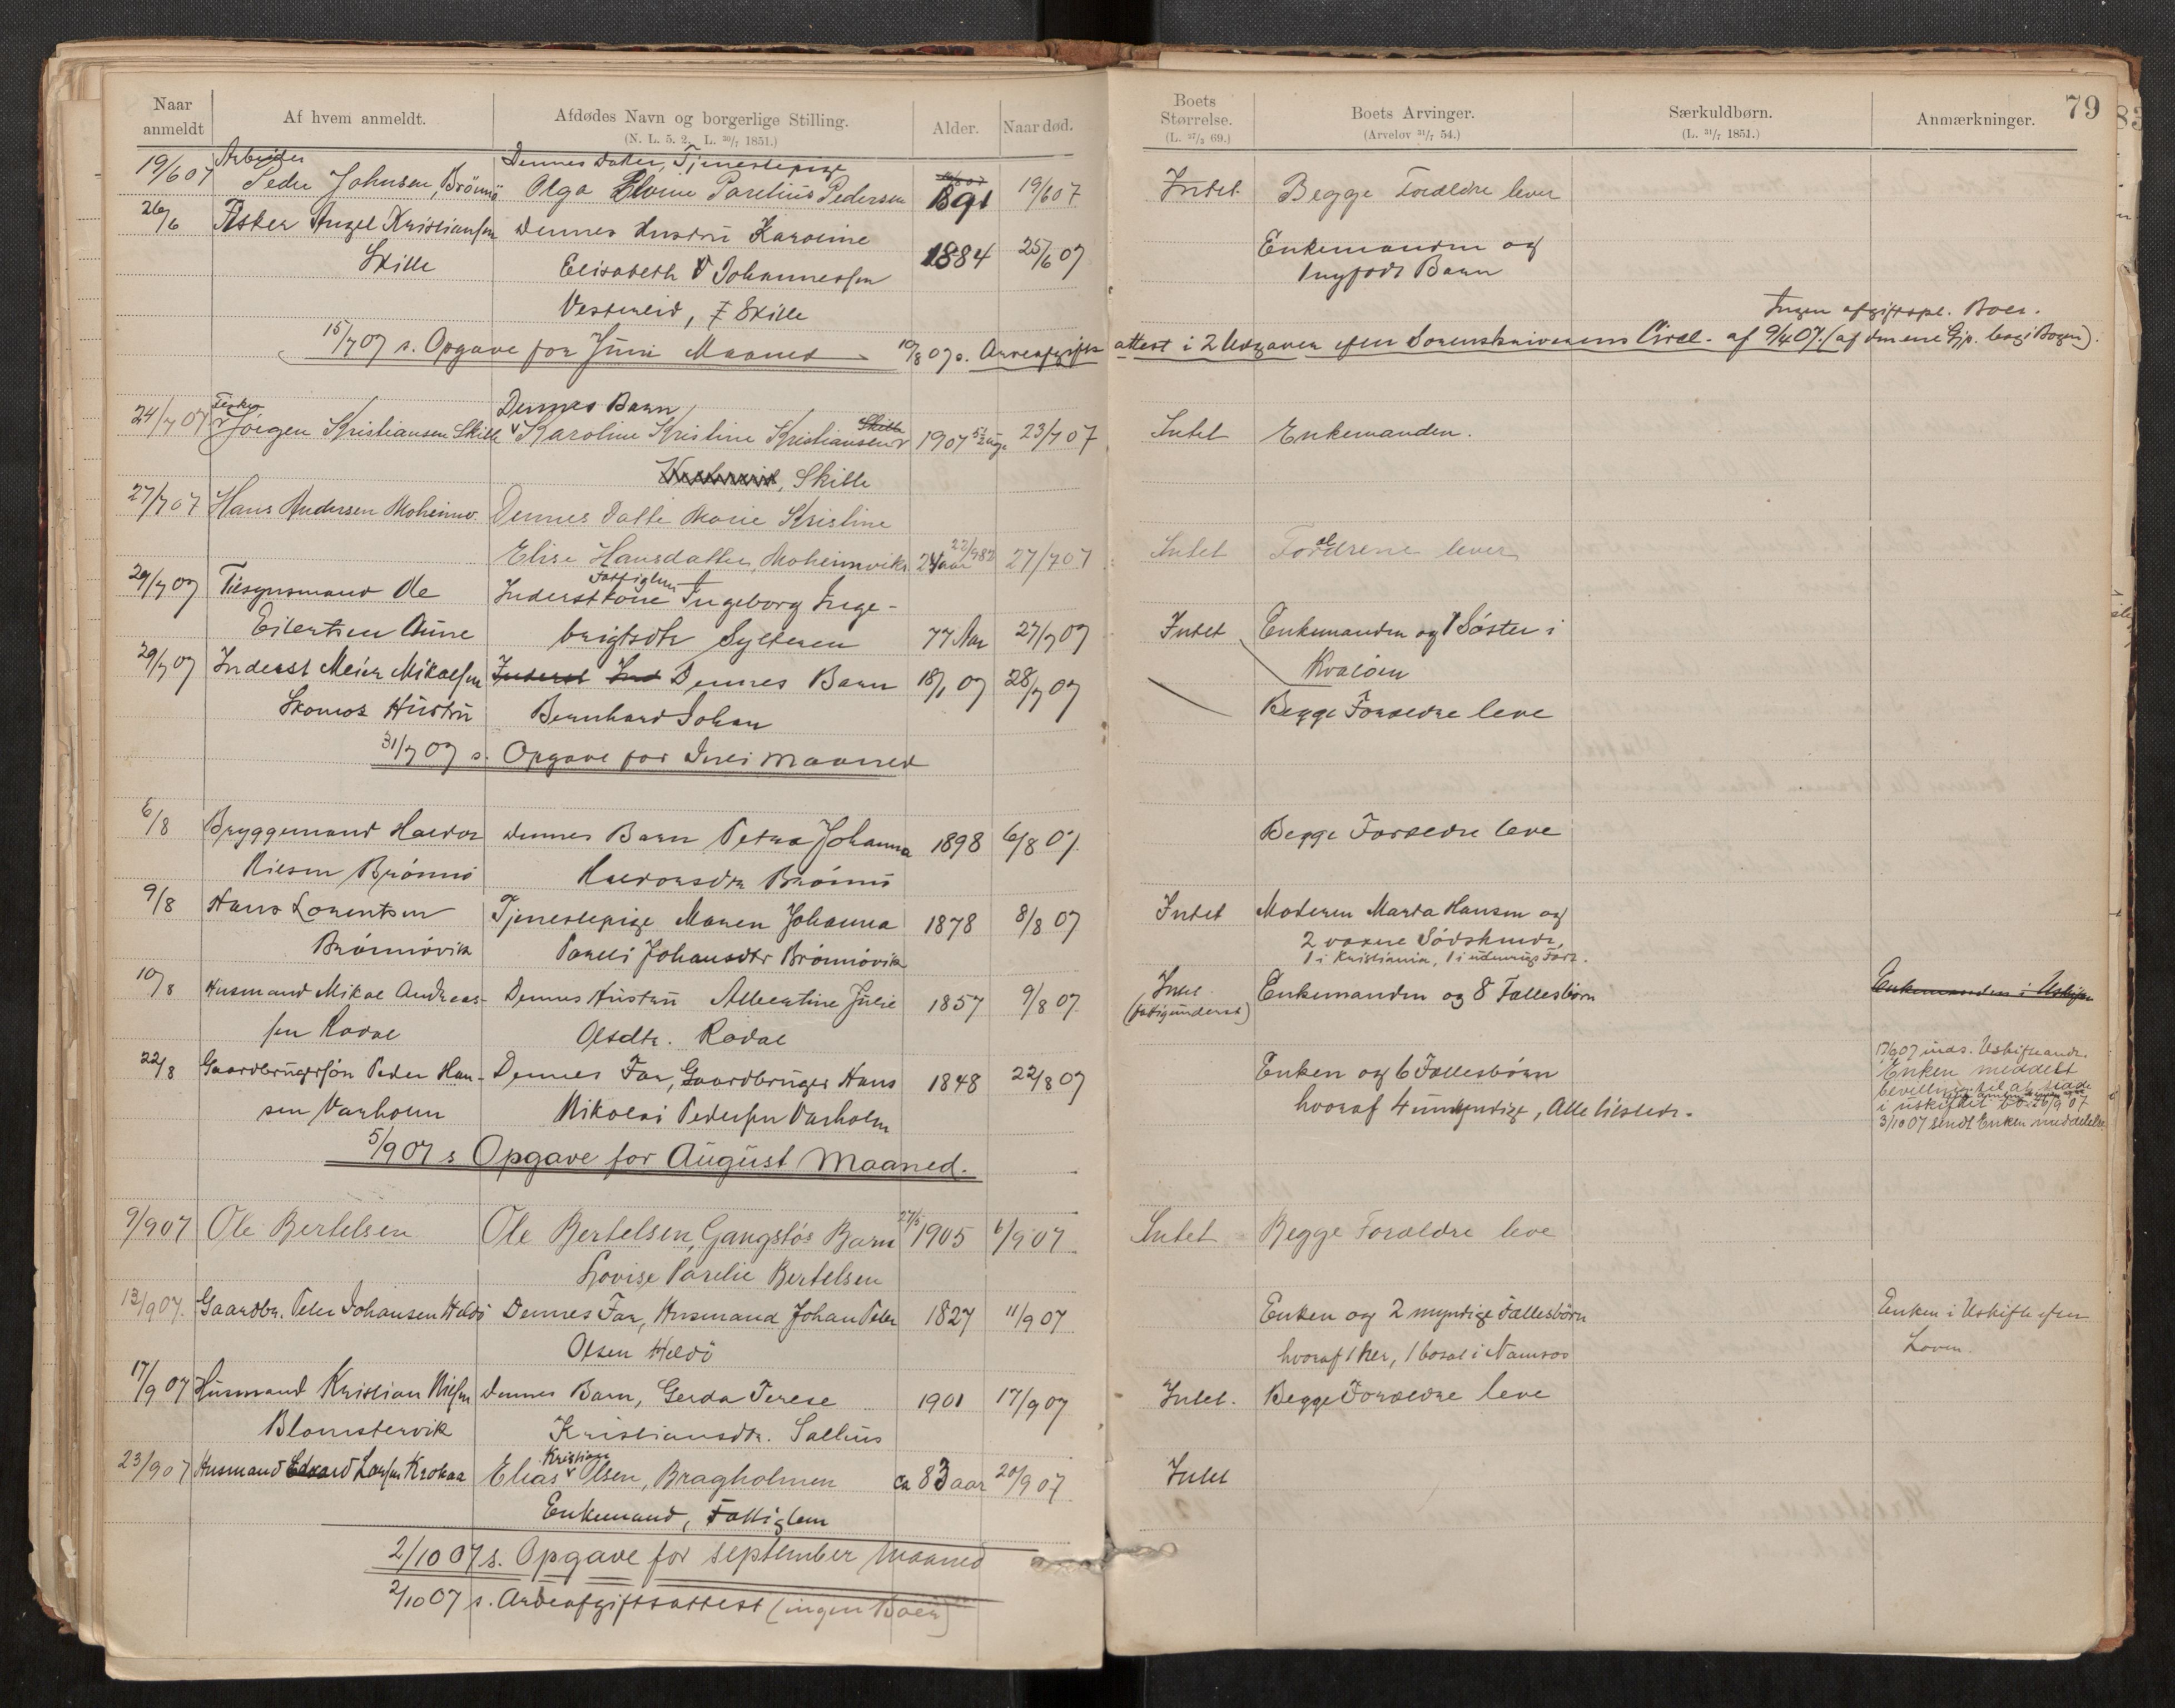 79
Naar anmeldt
Af hvem anmeldt.
Afdødes Navn og borgerlige Stilling.
(N. L. 5. 2., L. 30/7 1851.)
Alder.
Naar død.
Boets Størrelse.
(L. 27/2 69.)
Boets Arvinger.
(Arvelov 31/7 54.)
Særkuldbørn.
(L. 31/7 1851.)
Anmærkninger.
Arbeider Dennes Datter, Tjenestepige
19/6 07 Peder Johnsen, Brönnö Olga Elvine Parelius Pedersen 1891 19/6 07 Intet Begge Forældre lever
26/6 Fisker Angel Kristiansen Dennes Hustru Karoline 1884 25/6 07 Enkemanden og
Skille Elisabeth Johannessen 1 nyfødt Barn
Vestereid, Skille
Ingen afgiftspl. Boer.
15/7 07 s. Opgave for Juni Maaned 10/8 07 s. Arveafgifts attest i 2 Udgaver efter Sorenskriverens Circl. af 9/4 07. (af den ene Gjp. lagt i Bogen).
Fisker Dennes Barn
24/7 07 Jörgen Kristiansen Skille Karoline Kristine Kristiansen 1907 5½ uge 23/7 07 Intet Enkemanden.
Skille
27/7 07 Hans Andersen Moheimv. Dennes Datte Marie Kristine
Elise Hansdatter, Moheimvik 24 aar 27/7 07 Intet Forældrene lever
29/7 07 Tilsynsmand Ole Inderstkone Fattiglem Ingeborg Inge-
Eilertsen Aune brigtsdtr Sylteren 77 Aar 27/7 07 Intet Enkemanden og 1 Söster i
Kvalöen
29/7 07 Inderst Meier Mikalsen Inderst Ind Dennes Barn 18/1 07 28/7 07
Skomos Hustru Bernhard Johan Begge Forældre leve
31/7 07 s. Opgave for Juli Maaned
6/8 Bryggemand Haldor Dennes Barn Petra Johanna 1898 6/8 07 Begge Forældre leve
Nilsen Brönnö Haldorsdtr Brönnö
9/8 Hans Lorentsen Tjenestepige Maren Johanna 1878 8/8 07 Intet Moderen Marta Hansen og
Brönnövik Pareli Johansdtr Brönnövik 2 voxne Södskende,
1 i Kristiania, 1 i udenrigs Fart.
10/8 Husmand Mikal Andreas- Dennes Hustru Albertine Julie 1857 9/8 07 Intet Enkemanden og 8 Fællesbörn Enkemanden i Uskifte
sen Rodal Olsdtr. Rodal (fattigunderst)
22/8 Gaardbrugersön Peder Han- Dennes Far, Gaardbruger Hans 1848 22/8 07 Enken og 6 Fællesbörn
sen Varholm Nikolai Pedersen Varholm hvoraf 4 umyndige, Alle tilstede.
17/9 07 inds. Uskifteandr.
Enken meddelt
bevilling til at sidde
i uskiftet bo 26/9 07
3/10 07 sendt Enken meddelelse
5/9 07 s Opgave for August Maaned.
9/9 07 Ole Bertelsen Ole Bertelsen, Gangstös Barn 27/5 1905 6/9 07 Intet Begge Forældre leve
Lovise Parelie Bertelsen
13/9 07. Gaardbr. Peter Johansen Heldö Dennes Far, Husmand Johan Peter 1827 11/9 07 Enken og 2 myndige Fællesbörn Enken i Uskifte efter
Olsen Heldö hvoraf 1 her, 1 bosat i Namsos Loven.
17/9 07 Husmand Kristian Nilsen Dennes Barn, Gerda Terese 1901 17/9 07 Intet. Begge Forældre leve
Blomstervik Kristiansdtr. Salhus
23/9 07 Husmand Edvard Larsen Krokaa Elias Kristian Olsen, Bragholmen ca 83 aar 20/9 07 Intet
Enkemand, Fattiglem
2/10 07 s. Opgave for september Maaned
2/10 07 s. Arveafgiftsattest (ingen Boer)